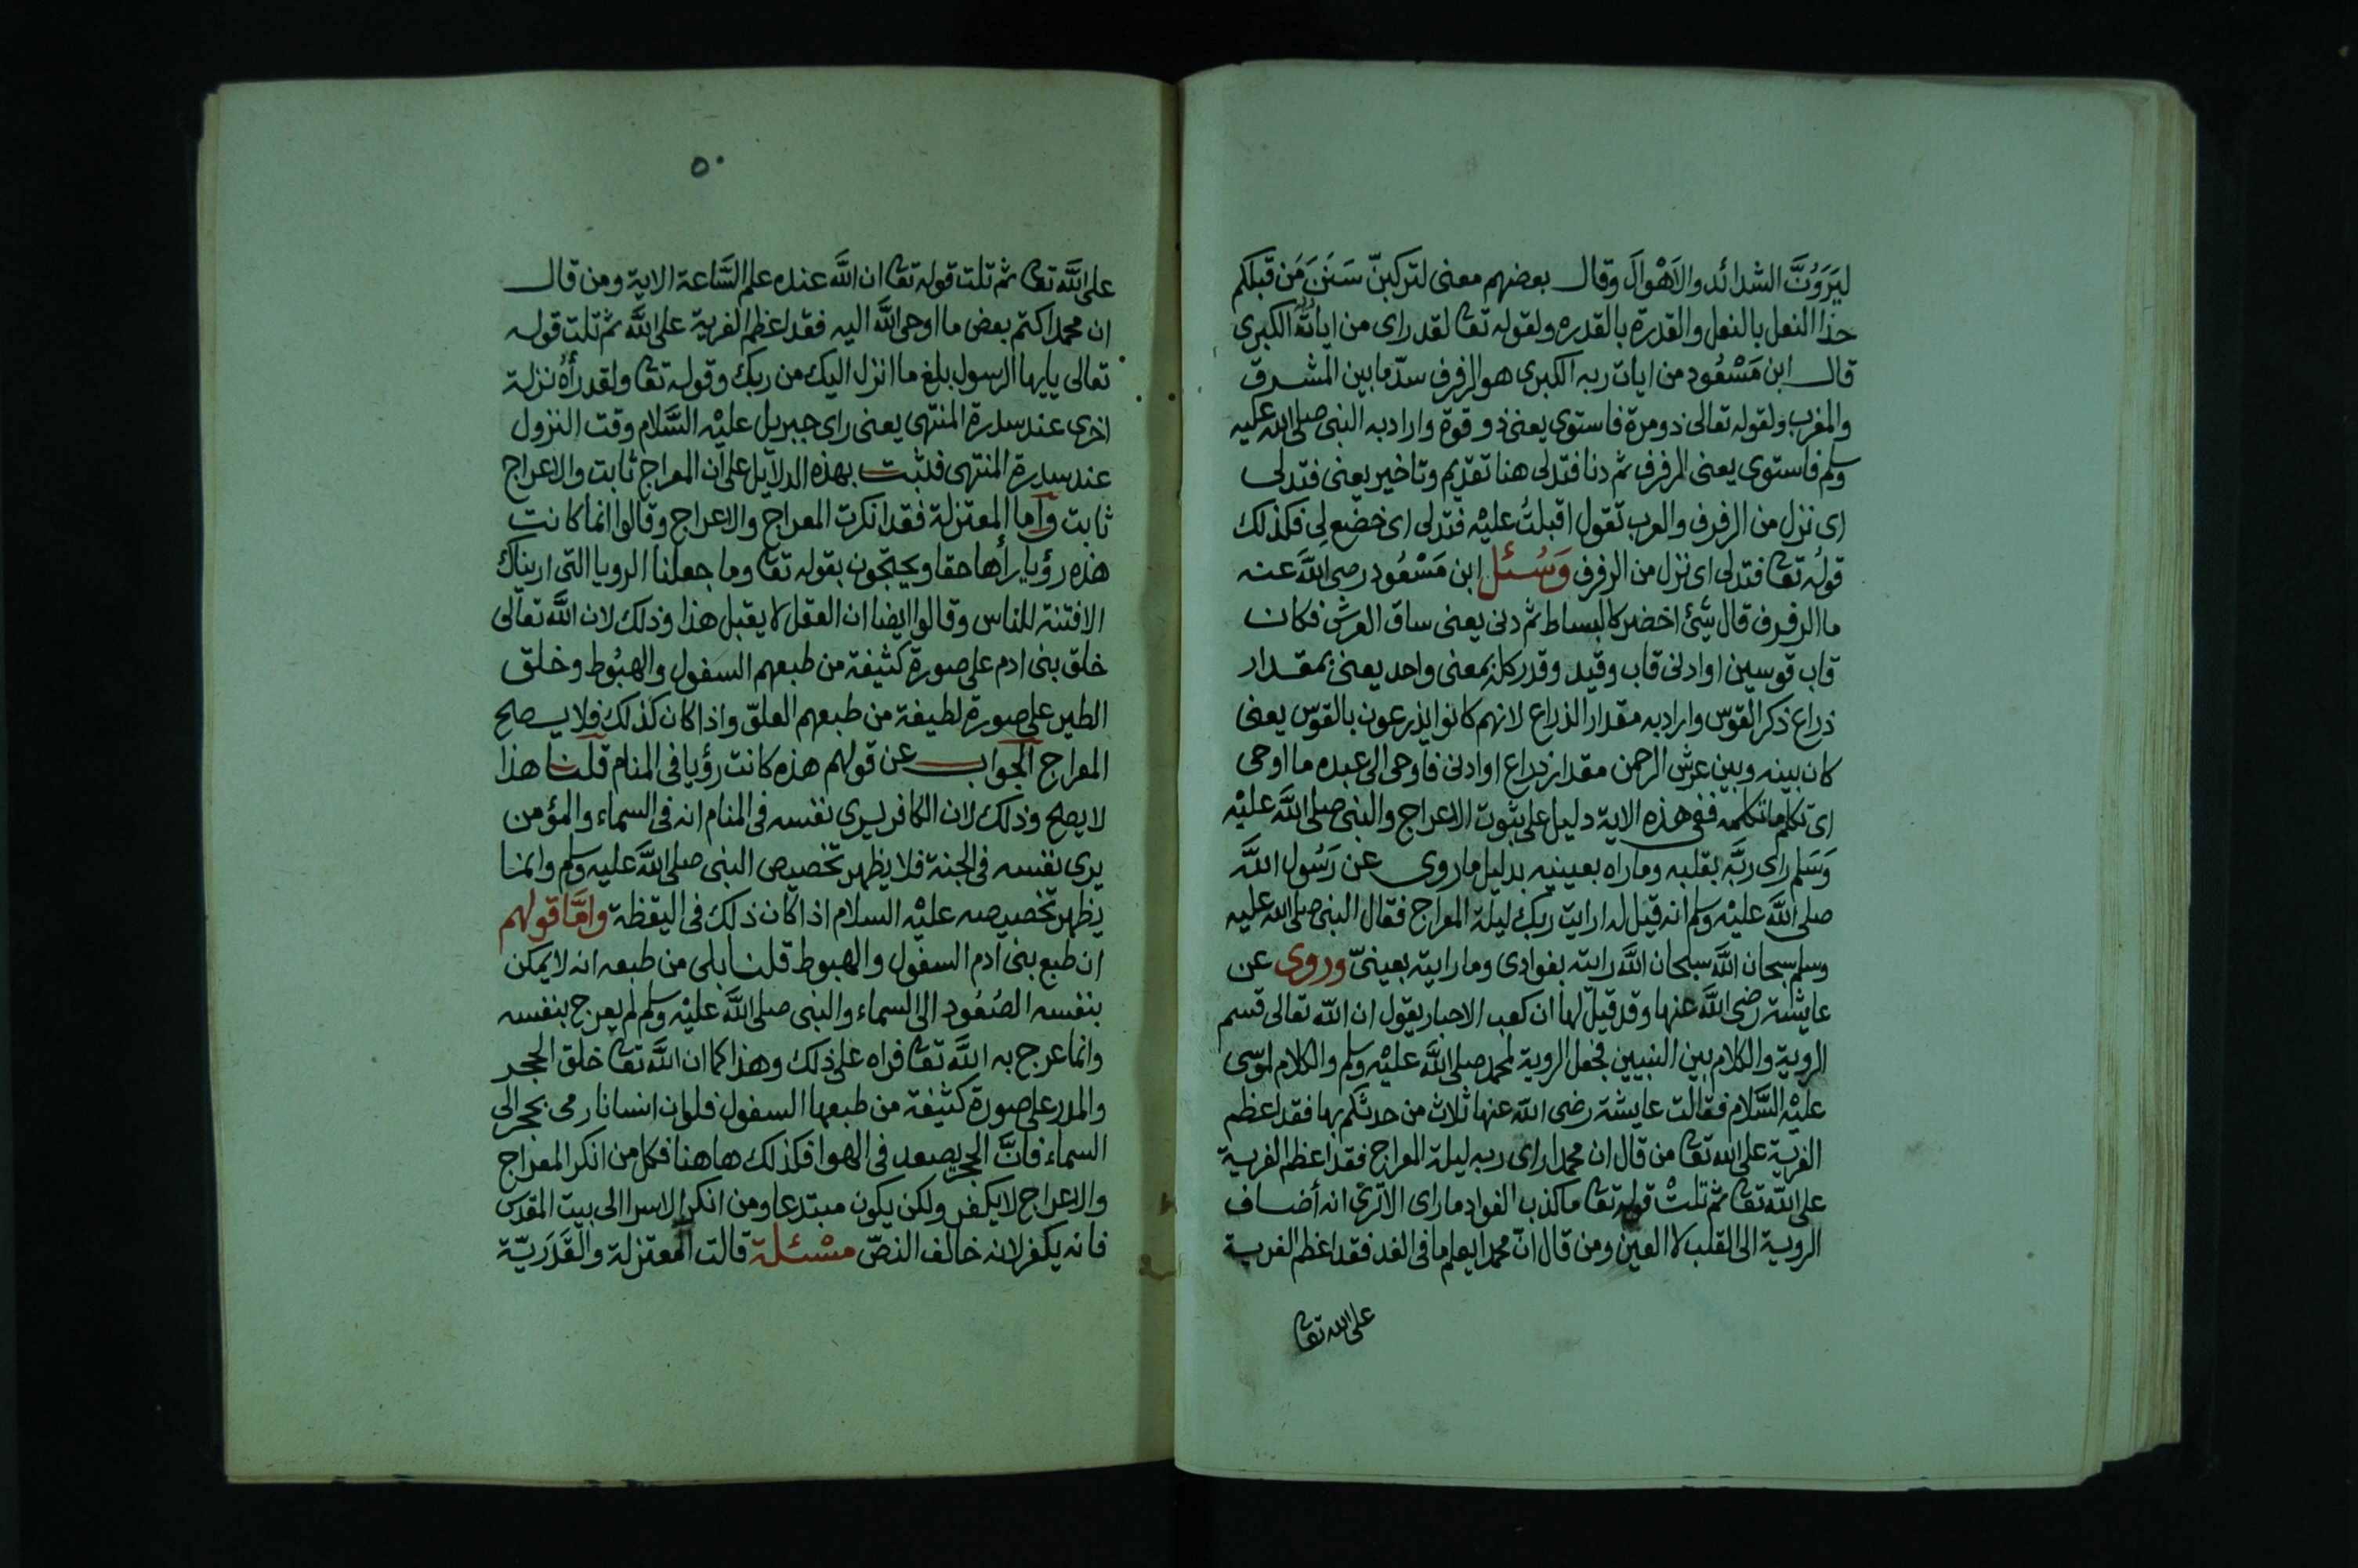 ليَرَوُنَّ الشدائد والاَهْوالَ وقال بعضهم معنى لتركبنّ سَنَنَ مَن قبلكم
حذا النعل بالنعل والقدرة بالقدره ولقوله تعا لقد راى من ايات ربه الكبرى
قال ابن مَسْعُود من ايات ربه الكبرى هو الرفرف سدّ ما بين المشرق
والمغرب ولقوله تعالى ذو مرة فاستوى يعنى ذو قوة واراد به النبى صلى الله عليه
وسلم فاستوى يعنى الرفرف ثم دنا فتدلى هنا تقديم وتاخير يعنى فتدلى
اى نزل من الرفرف والعرب تقول اقبلتُ عليْه فتدلى اى خضع لِى فكذلك
قولُه تعا فتدلى اى نزل من الرفرف وَسُئل ابن مَسْعُود رضى الله عنه
ما الرفرف قال شئ اخضر كالبساط ثم دنى يعنى ساق العرش فكان
قاب قوسين او ادنى قاب وقيد وقدر كله بمعنى واحد يعنى بمقدار
ذراع ذكر القوس واراد به مقدار الذراع لانهم كانوا يذرعون بالقوس يعنى
كان بينه وبين عرش الرحمن مقدار ذراع او ادنى فاوحى الى عبده ما اوحى
اى تكلم ما تكلمه ففى هذه الاية دليل على ثبوت الاعراج والنبى صلى الله عليْه
وَسَلم راى ربَّه بقلبه وما راه بعينيه بدليل ما روى عن رَسُول اللَّه
صلى الله عليْه وسلم انه قيل له ارايت ربك ليلة المعراج فقال النبى صلى الله عليه
وسلم سبحان اللَّه سبحان اللَّه رايته بفوادى وما رايته بعينىّ وروى عن
عايشة رضى الله عنها وقد قيل لها ان كعب الاحبار يقول ان الله تعالى قسم
الروية والكلام بين النبيين فجعل الروية لمحمد صلى الله عليْه وسلم والكلام لموسى
عليْه السَّلام فقالت عايشة رضى الله عنها ثلاث من حدثكم بها فقد اعظم
الفرية على الله تعا من قال ان محمدا راى ربه ليلة المعراج فقد اعظم الفرية
على الله تعا ثم تلتْ قوله تعا ما كذب الفواد ما راى الا ترىْ انه أضاف
الروية الى القلب لا العين ومن قال انّ محمدا يعلم ما فى الغد فقد اعظم الفرية
على الله تعا
٥٠
على اللَّه تعا ثم تلت قوله تعا ان اللَّه عنده علم السَّاعة الاية ومن قال
ان محمدا كتم بعض ما اوحى اللَّه اليه فقد اعظم الفرية على اللَّه ثم تلت قوله
تعالى يايها الرسول بلغ ما انزل اليك من ربك وقوله تعا ولقد رأه نزلة
اخرى عند سدرة المنتهى يعنى راى جبريل عليْه السَّلام وقت النزول
عند سدرة المنتهى فثبت بهذه الدلايل على ان المعراج ثابت والاعراج
ثابت وَاَما المعتزلة فقد انكرت المعراج والاعراج وقالوا انما كانت
هذه رؤيا رأها حقا ويحتجون بقوله تعا وما جعلنا الرويا التى اريناك
الا فتنة للناس وقالوا ايضا ان العقل لا يقبل هذا وذلك لان اللَّه تعالى
خلق بنى ادم على صورة كثيفة من طبعهم السفول والهبُوط وخلق
الطير على صورة لطيفة من طبعهم العلوّ واذا كان كذلك فلا يصلح
المعراج الجواب عن قولهم هذه كانت رؤيا فى المنام قلنا هذا
لا يصلح وذلك لان الكافر يرى نفسه فى المنام انه فى السماء والمؤمن
يرى نفسه فى الجنة فلا يظهر تخصيص النبى صلى اللَّه عليه وسلم وانما
يظهر تخصيصه عليْه السلام اذا كان ذلك فى اليقظة وامَّا قولهم
ان طبع بنى ادم السفول والهبوط قلنا بلى من طبعه انه لا يمكن
بنفسه الصُعُود الى السماء والنبى صلى اللَّه عليْه وسلم لم يعرج بنفسه
وانما عرج به اللَّه تعا فراه على ذلك وهذا كما ان اللَّه تعا خلق الحجر
والمدر على صورة كثيفة من طبعها السفول فلو ان انسانا رمى بحجر الى
السماء فانَّ الحجر يصعد فى الهوا فكذلك هاهنا فكل من انكر المعراج
والاعراج لا يكفر ولكن يكون مبتدعا ومن انكر الاسرا الى بيت المقدس
فانه يكفر لانه خالف النصّ مسْئلة قالت المعتزلة والقَدَريّة